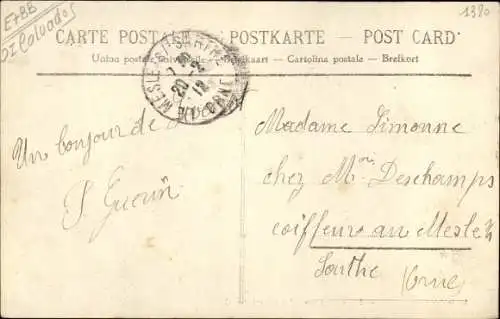 E+BB
Dz Calvados
1380
CARTE POSTALE — POSTKARTE — POST CARD
Union postale universelle — Briefkaart — Cartolina postale — Brefkort
MESLE S/ SARTHE
20 -2
12
ORNE
Un bonjour de
P. Guérin
Madame Simonne
chez Mr Deschamps
coiffeur au Mesle s/
Sarthe (Orne)